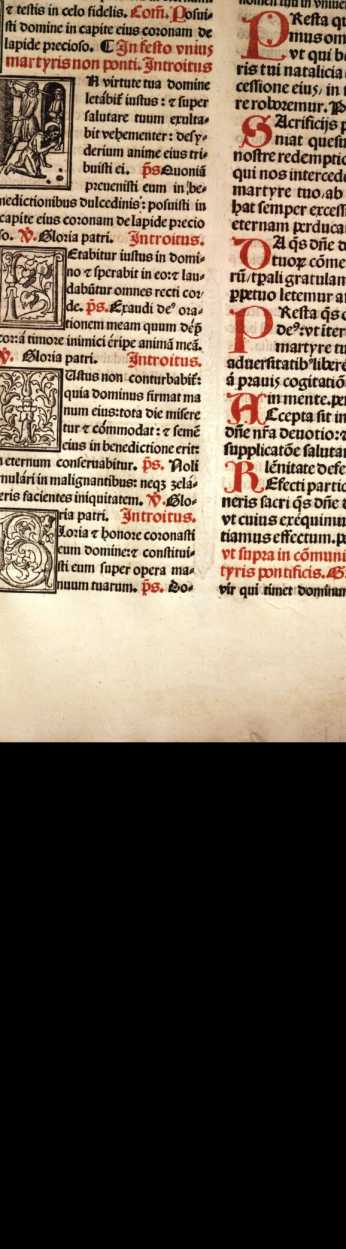 ⁊ testis in celo fidelis. Com̄. Posui⸗
sti domine in capite eius coronam de
lapide precioso. ¶ In festo vnius
martyris non ponti. Introitus
N virtute tua domine
letabit̄ iustus: ⁊ super
salutare tuum exulta⸗
bit vehementer: desy⸗
derium anime eius tri⸗
buisti ei. p̄s. Quoniā
preuenisti eum in be⸗
nedictionibus dulcedinis: posuisti in
capite eius coronam de lapide precio
so. ℣. Gloria patri. Introitus.
Letabitur iustus in domi⸗
no ⁊ sperabit in eo: ⁊ lau⸗
dabūtur omnes recti cor
de. p̄s. Exaudi deꝰ ora⸗
tionem meam quum dep̄
cor: a timore inimici eripe animā meā.
℣. Gloria patri. Introitus.
Iustus non conturbabit̄:
quia dominus firmat ma
num eius: tota die misere
tur ⁊ cōmodat: ⁊ semē
eius in benedictione erit:
in eternum conseruabitur. p̄s. Noli
emulari in malignantibus: neqꝫ zela⸗
ueris facientes iniquitatem. ℣. Glo⸗
ria patri. Introitus.
Gloria ⁊ honore coronasti
eum domine: ⁊ constitui⸗
sti eum super opera ma⸗
nuum tuarum. p̄s. Do⸗
Presta qu
mus om
vt qui b
ris tui natalicia
cessione eius, in t
re roboremur. P
SAcrificijs p
niat quesu
nostre redemptio
qui nos intercede
martyre tuo, ab
hat semper excess
eternam perduca
DA q̄s dn̄e d
tuoꝝ cōme
rū, tpali gratulam
ꝑpetuo letemur a
PResta q̄s o
deꝰ: vt iter
martyre tu
aduersitatibꝰ libere
a prauis cogitatiō
in mente. per
ACcepta sit in
dn̄e nr̄a deuotio: ⁊
supplicatōe salutar
lēnitate defe
REfecti partic
neris sacri q̄s dn̄e d
vt cuius exequimur
tiamus effectum. p
vt supra in cōmuni
tyris pontificis.
vir qui timet dominum